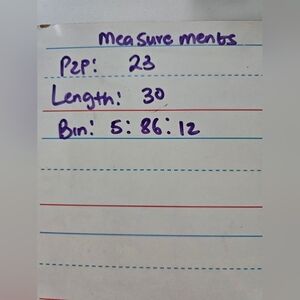 Measurements
P2P: 23
Length: 30
Bin: 5: 86: 12